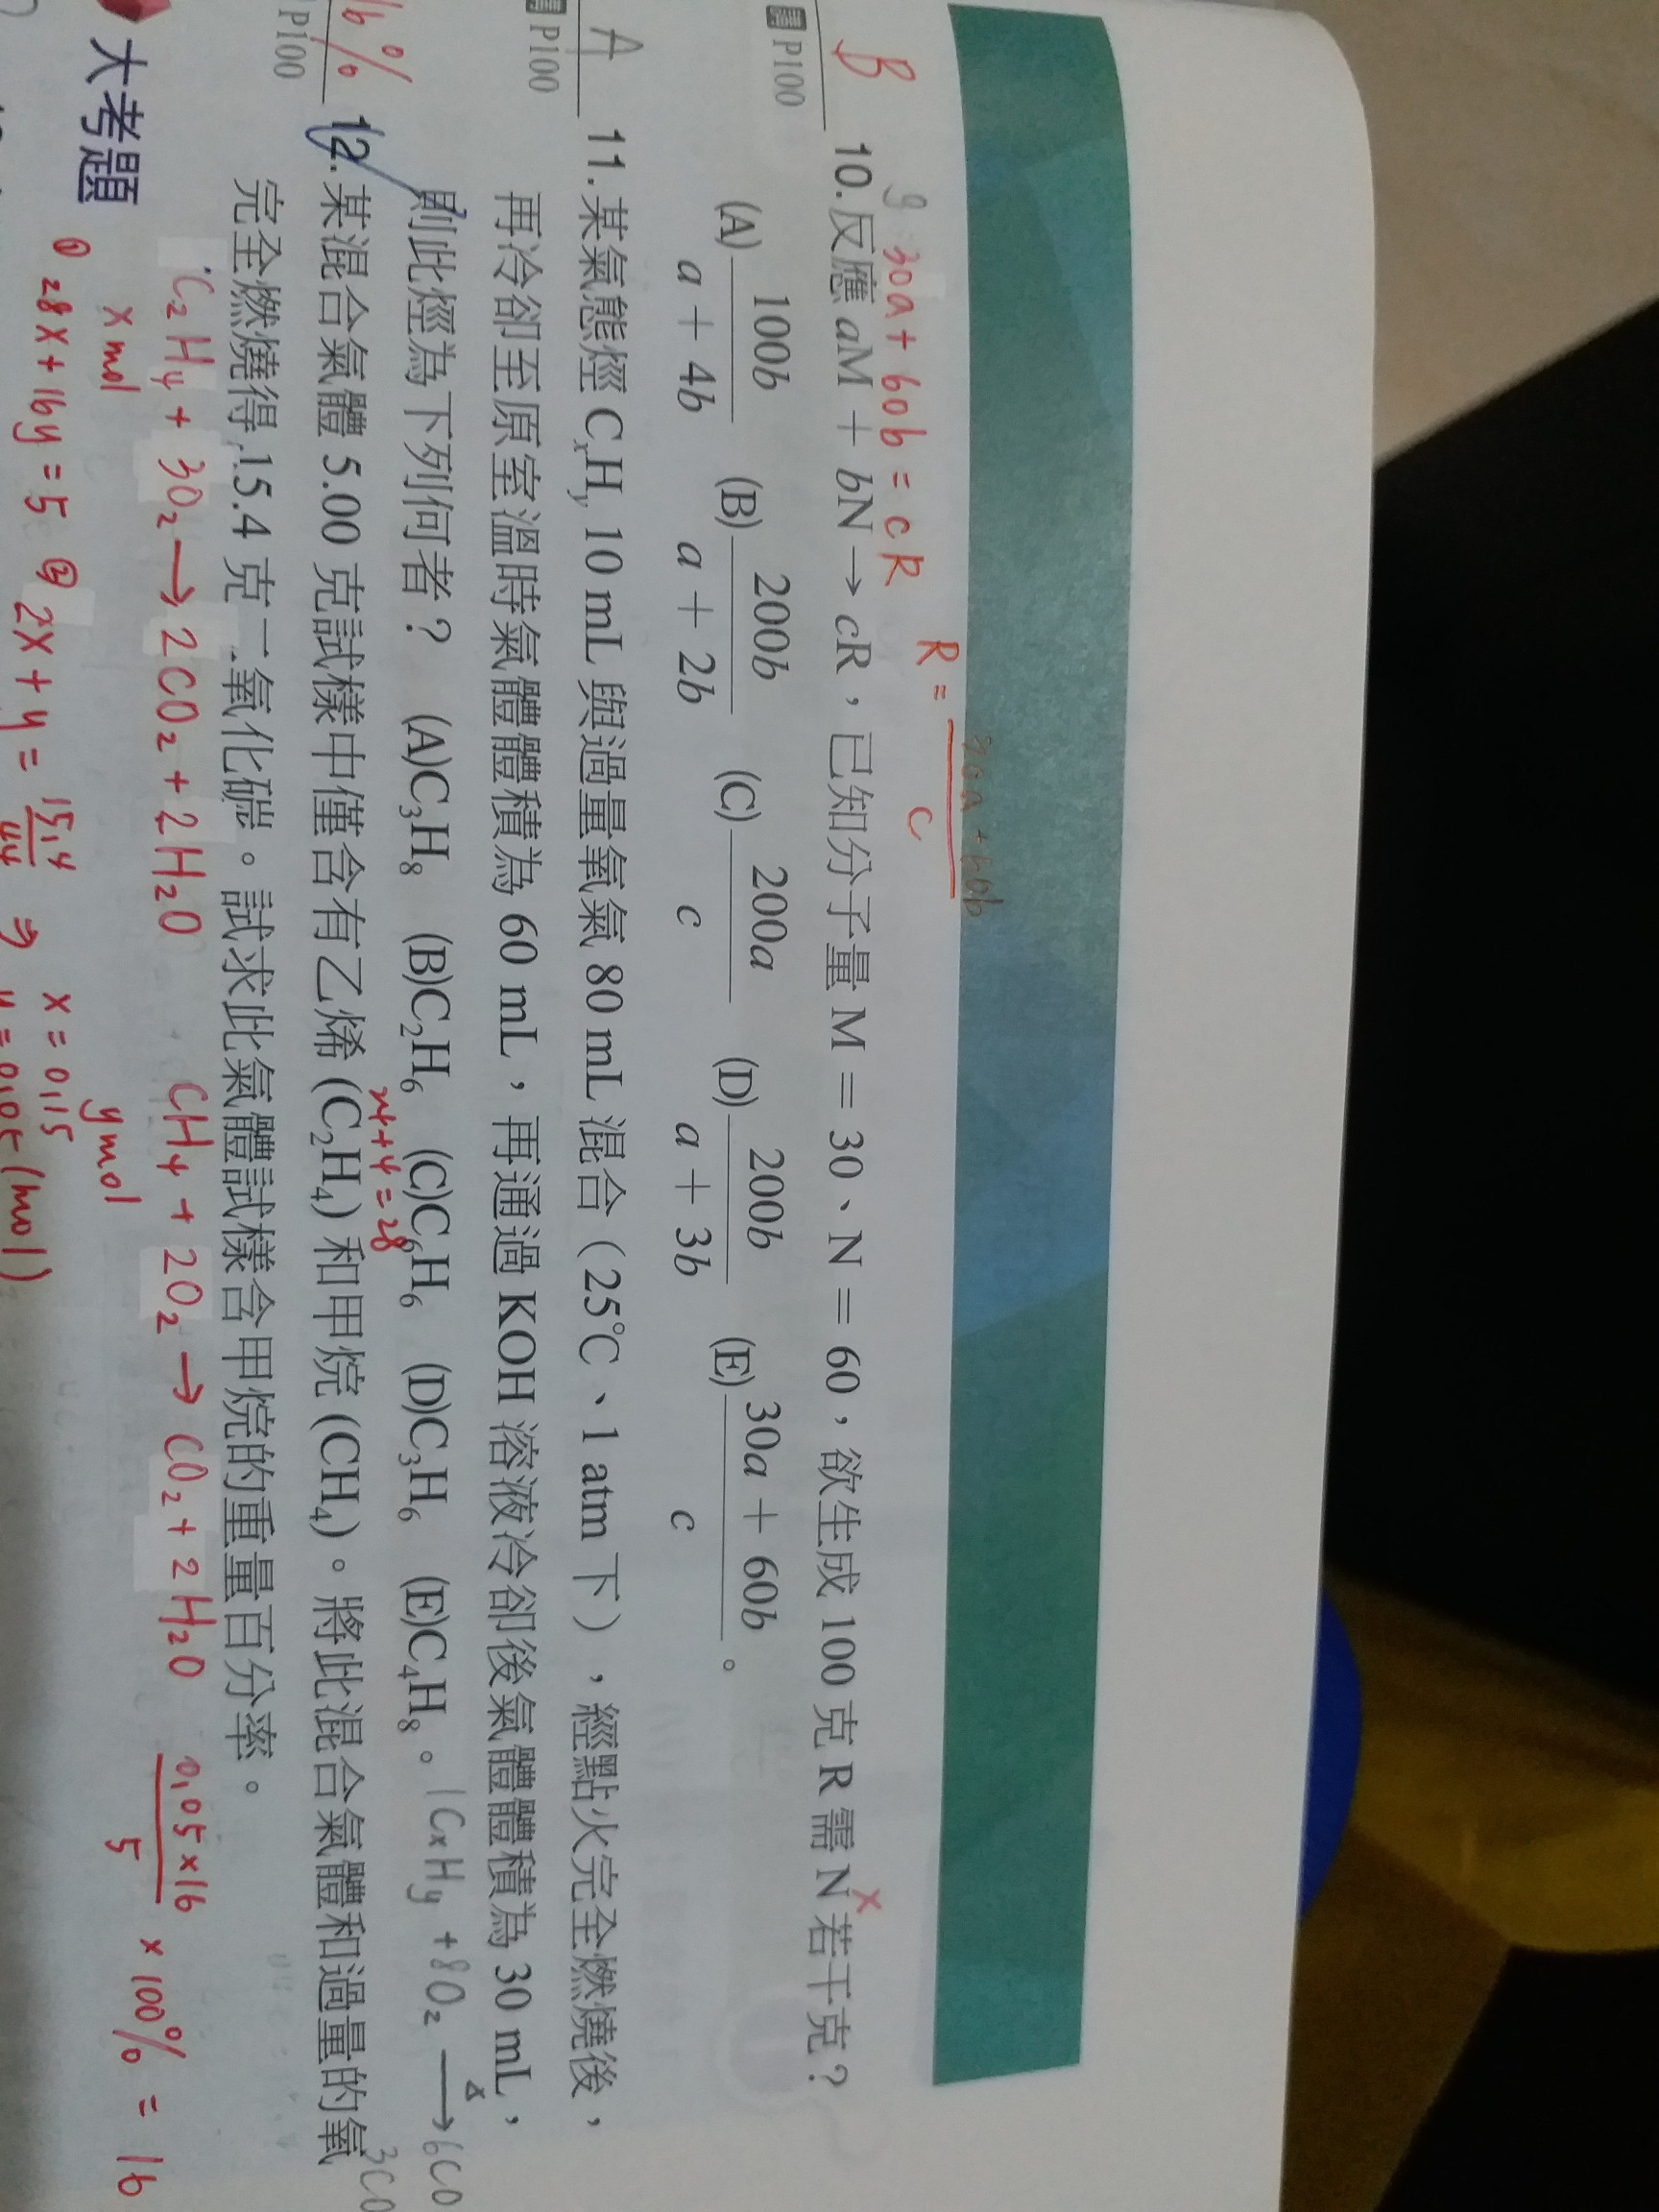 R = (30a + 60b) / c
30a + 60b = cR
B 10. 反應 aM + bN → cR，已知分子量 M = 30、N = 60，欲生成 100 克 R 需 N 若干克？
x
P100
(A) 100b / (a + 4b) (B) 200b / (a + 2b) (C) 200a / c (D) 200b / (a + 3b) (E) (30a + 60b) / c 。
A 11. 某氣態烴 CxHy 10 mL 與過量氧氣 80 mL 混合（25℃、1 atm 下），經點火完全燃燒後，
P100
再冷卻至原室溫時氣體體積為 60 mL，再通過 KOH 溶液冷卻後氣體體積為 30 mL，
則此烴為下列何者？ (A)C₃H₈ (B)C₂H₆ (C)C₆H₆ (D)C₃H₆ (E)C₄H₈。
1CxHy + 8O₂ →
Δ
24+4=28
16% 12. 某混合氣體 5.00 克試樣中僅含有乙烯 (C₂H₄) 和甲烷 (CH₄)。將此混合氣體和過量的氧
P100
完全燃燒得 15.4 克二氧化碳。試求此氣體試樣含甲烷的重量百分率。
C₂H₄ + 3O₂ → 2CO₂ + 2H₂O CH₄ + 2O₂ → CO₂ + 2H₂O
x mol y mol
0.05×16 / 5 ×100% = 16
大考題
① 28x + 16y = 5 ② 2x + y = 15.4 / 44 ⇒ x = 0.15
y = 0.05 (mol)